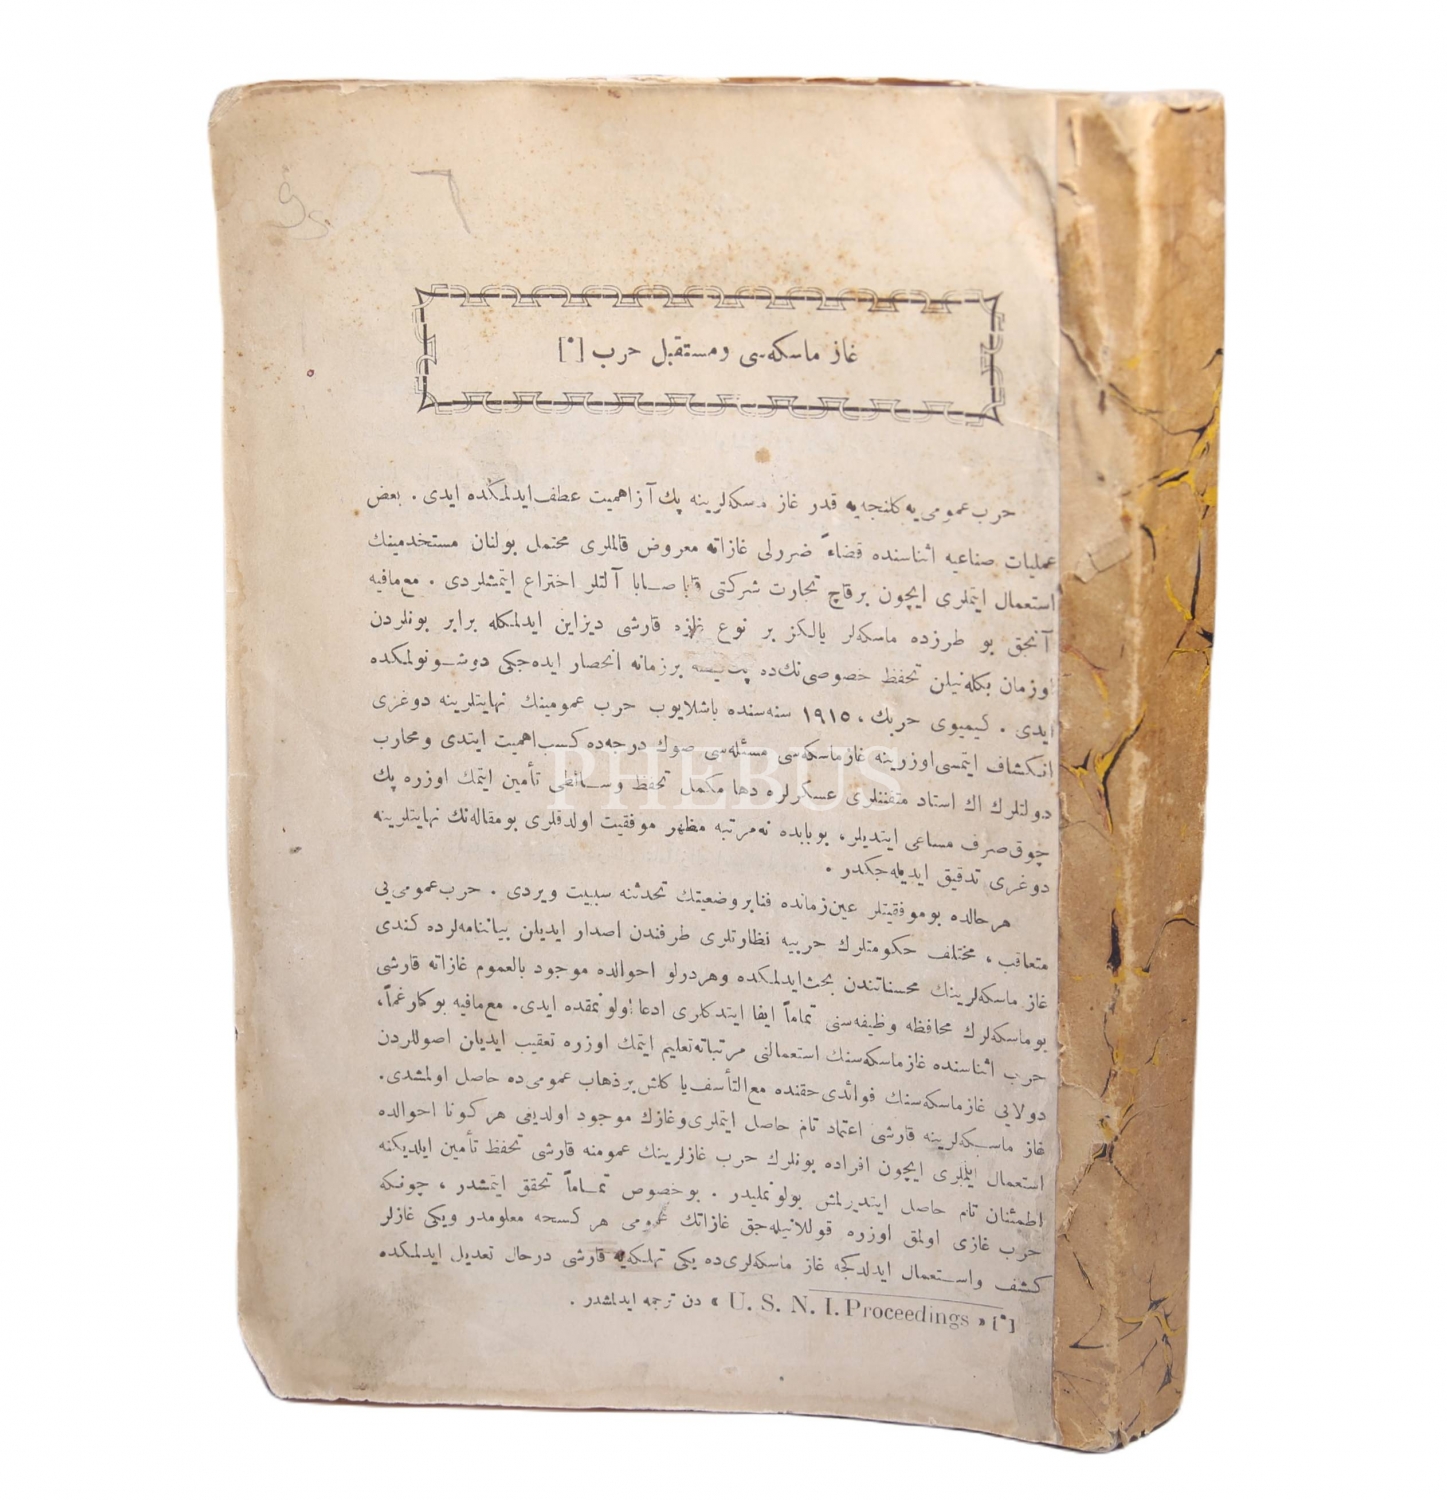 غاز ماسكه‌سی ومستقبل حرب [*]
حرب عمومی‌یه كلنجه‌یه قدر غاز مسكه‌لرینه پك آز اهمیت عطف ایدلمكده ایدی . بعض
عملیات صناعیه اثناسنده قضاءً ضررلی غازاته معروض قاللری محتمل بولنان مستخدمینك
استعمال ایتملری ایچون برقاچ تجارت شركتی قبا صابا آلتلر اختراع ایتمشلردی . مع‌مافیه
آنجق بو طرزده ماسكه‌لر یالكز بر نوع قارشی دیزاین ایدلمكله برابر بونلردن
اوزمان بكله‌نیلن تحفظ خصوصی‌نك‌ده برزمانه انحصار ایده‌جكی دوشونولمكده
ایدی . كیمیوی حربك ، ١٩١٥ سنه‌سنده باشلایوب حرب عمومینك نهایتلرینه دوغری
انكشاف ایتمسی اوزرینه غازماسكه‌سی مسئله‌سی صوك درجه‌ده كسب اهمیت ایتدی ومحارب
دولتلرك اك استاد متفننلری عسكرلره دها مكمل تحفظ وسائطی تأمین ایتمك اوزره پك
چوق صرف مساعی ایتدیلر، بوبابده نه‌مرتبه مظهر موفقیت اولدقلری بومقاله‌نك نهایتلرینه
دوغری تدقیق ایدیله‌جكدر .
هرحالده بوموفقیتلر عین زمانده فنابروضعیتك تحدثنه سببیت ویردی . حرب عمومی‌یی
متعاقب ، مختلف حكومتلرك حربیه نظارتلری طرفندن اصدار ایدیلن بیاننامه‌لرده كندی
غاز ماسكه‌لرینك محسناتندن بحث ایدلمكده وهردرلو احوالده موجود بالعموم غازاته قارشی
بوماسكه‌لرك محافظه وظیفه‌سنی تماماً ایفا ایتدكلری ادعا اولونمقده ایدی. مع‌مافیه بوكا رغماً،
حرب اثناسنده غازماسكه‌سنك استعمالنی مرتباته تعلیم ایتمك اوزره تعقیب ایدیلن اصوللردن
دولایی غازماسكه‌سنك فوائدی حقنده مع‌التأسف یاكلش برذهاب عمومی‌ده حاصل اولمشدی.
غاز ماسكه‌لرینه قارشی اعتماد تام حاصل ایتملری وغازك موجود اولدیغی هركونا احوالده
استعمال ایتملری ایچون افراده بونلرك حرب غازلرینك عمومنه قارشی تحفظ تأمین ایلدیكنه
اطمئنان تام حاصل ایتدیرلمش بولونمیلدر . بوخصوص تماماً تحقق ایتمشدر ، چونكه
حرب غازی اولمق اوزره قوللانیله‌جق غازاتك عمومی هركسجه معلومدر ویكی غازلر
كشف واستعمال ایدلدكجه غاز ماسكه‌لری‌ده یكی تهلكه‌یه قارشی درحال تعدیل ایدلمكده
[*] « U. S. N. I. Proceedings » دن ترجمه ایدلمشدر .
PHEBUS